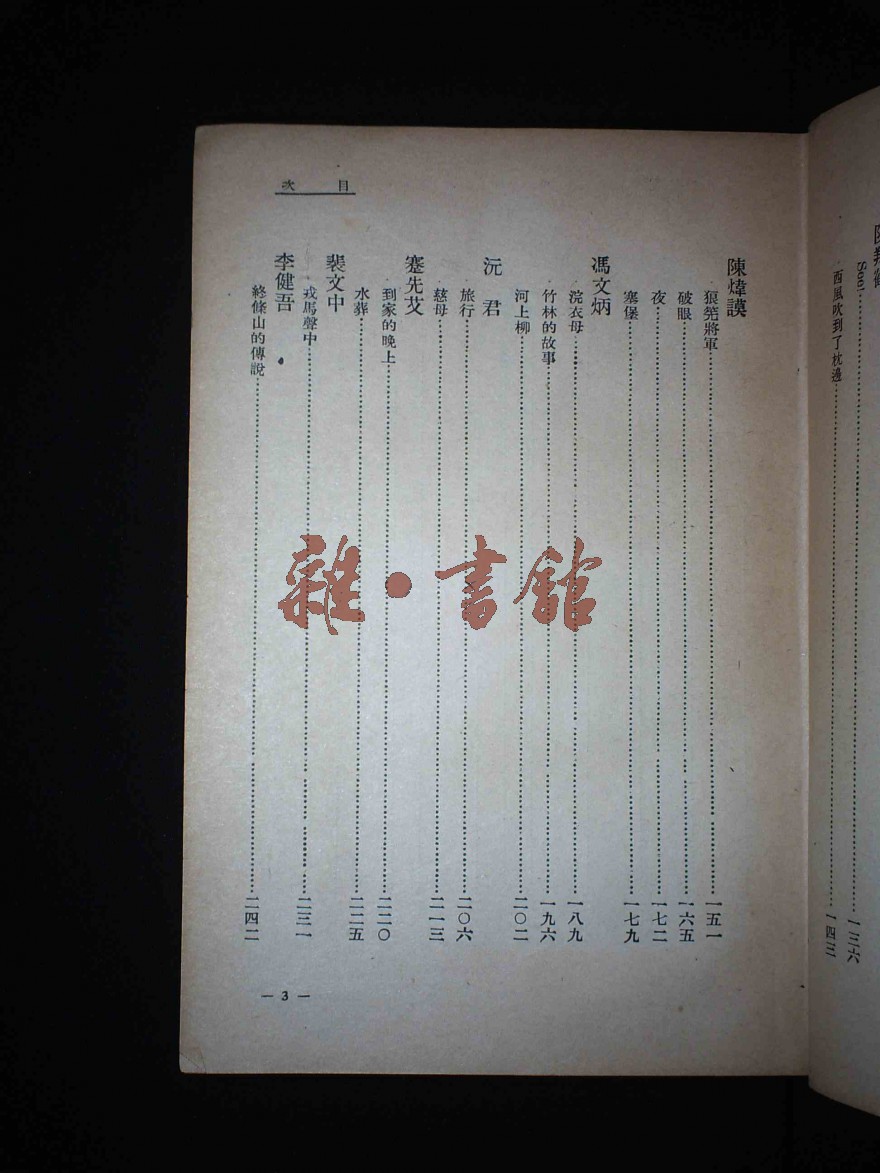 陳翔鶴
See!
一三六
西風吹到了枕邊
一四三
目 次
陳煒謨
狼筅將軍
一五一
破眼
一六五
夜
一七二
寨堡
一七九
馮文炳
浣衣母
一八九
竹林的故事
一九六
河上柳
二〇二
沅 君
旅行
二〇六
慈母
二一三
蹇先艾
到家的晚上
二二〇
水葬
二二五
裴文中
戎馬聲中
二三一
李健吾
終條山的傳說
二四二
— 3 —
雜·書館